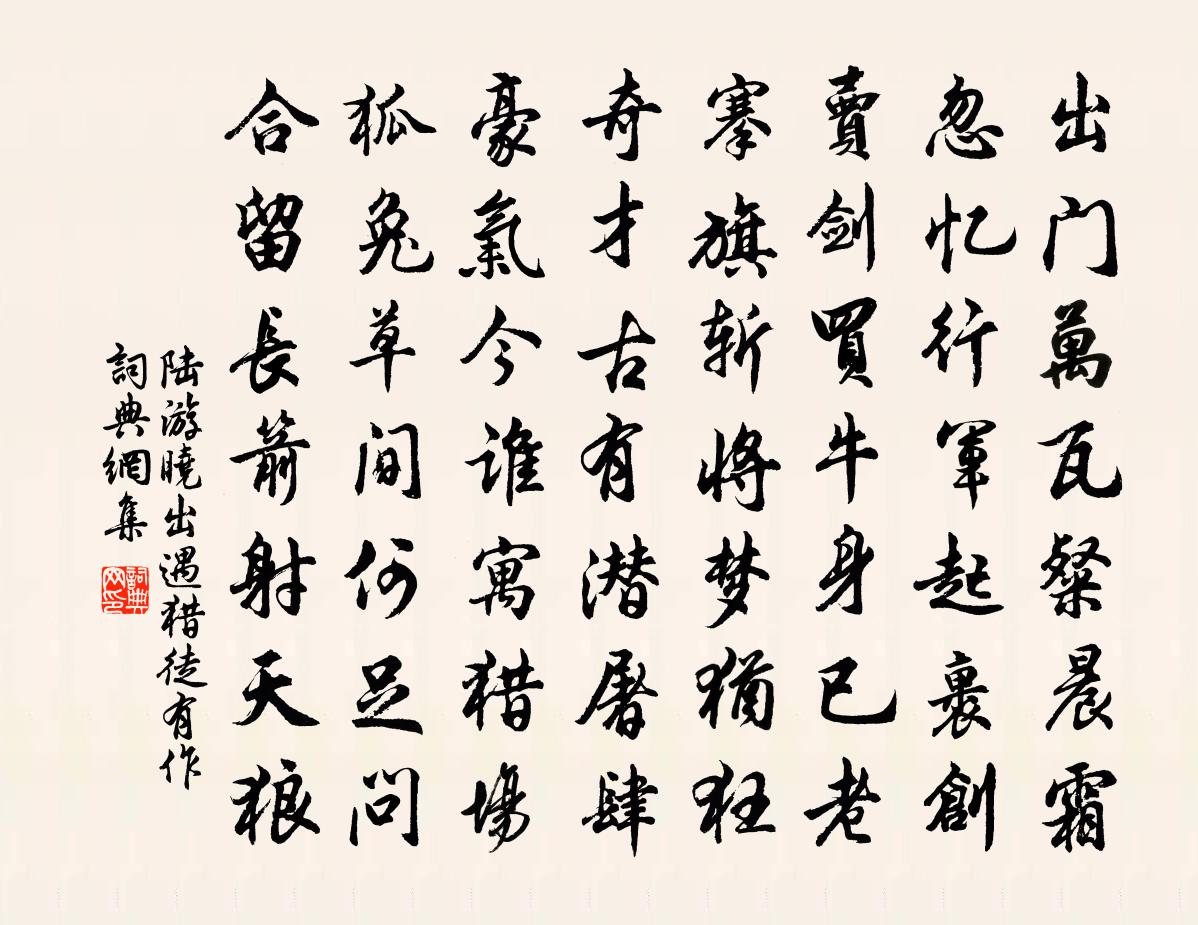 出门萬瓦粲晨霜
忽忆行军起裹創
賣剑買牛身已老
搴旗斩将梦猶狂
奇才古有潜屠肆
豪氣今谁寓猎場
狐兔草间何足问
合留長箭射天狼
陆游曉出遇猎徒有作
詞典網集
詞典网印